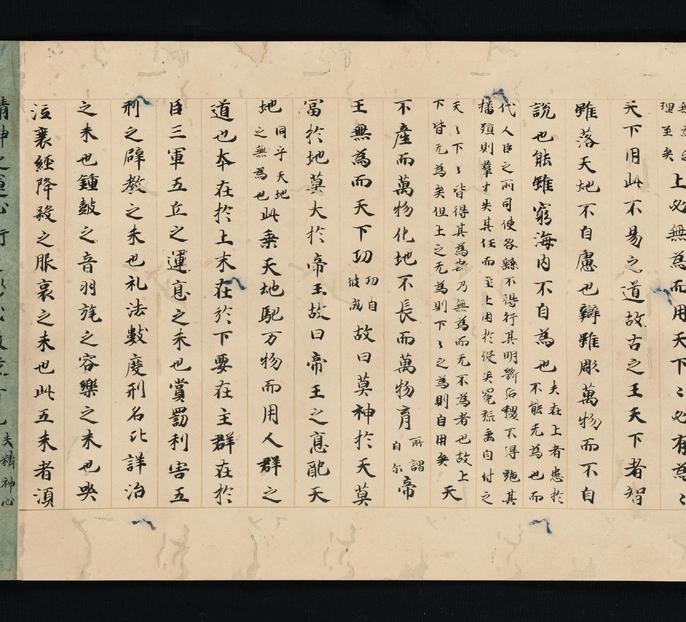 理至矣上必無為而用天下〻必有為〻
天下用此不易之道故古之王天下者智
雖落天地不自慮也辯雖彫萬物而不自
說也能雖窮海内不自為也夫在上者患於
不能无為也而
代人臣之所司使咎繇不得行其明斷后稷不得施其
播殖則羣才失其任而主上困於役矣冕旒垂目付之
天〻下〻皆得其為斯乃無為而无不為者也故上
下皆无為矣但上之无為則用下〻之為則自用矣天
不產而萬物化地不長而萬物育所謂
自尔帝
王無為而天下功功自
彼成故曰莫神於天莫
富於地莫大於帝王故曰帝王之德配天
地同乎天地
之無為也此乘天地馳万物而用人群之
道也本在於上末在於下要在主群在於
臣三軍五兵之運德之末也賞罰利害五
刑之辟教之末也礼法數度刑名比詳治
之末也鍾皷之音羽旄之容樂之末也哭
泣衰絰降殺之服哀之末也此五末者須
精神之運心夫精神心